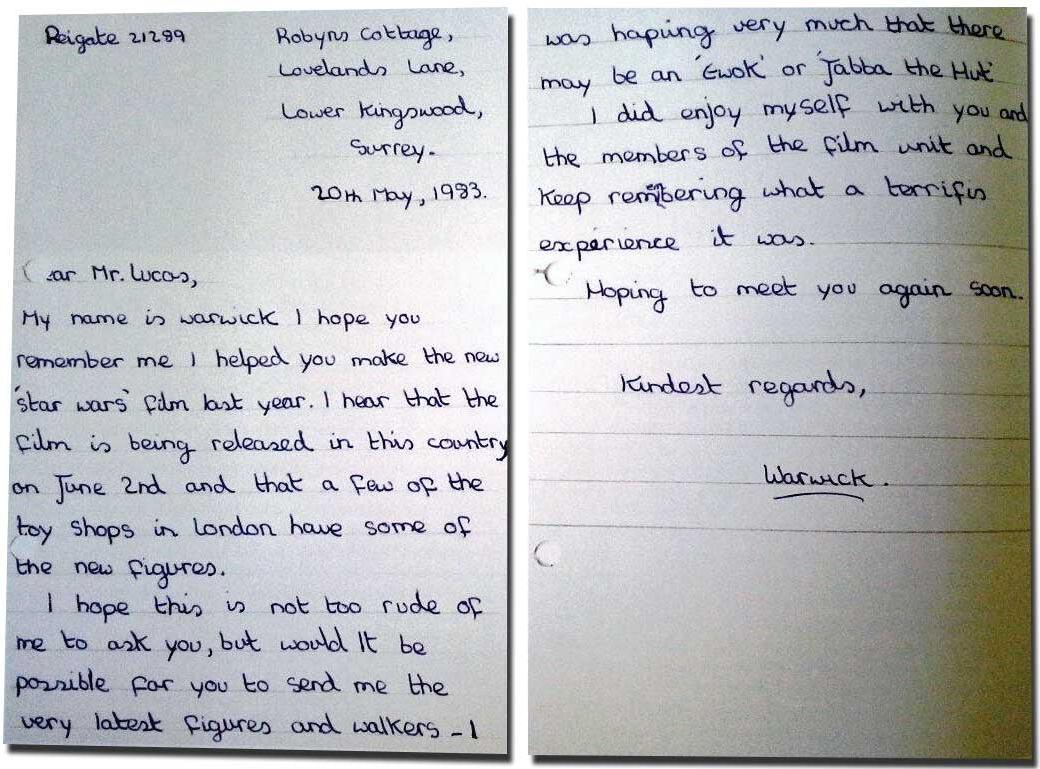 Reigate 21289
Robyns Cottage,
Lovelands Lane,
Lower Kingswood,
Surrey.
20th May, 1983.
ear Mr. Lucas,
My name is warwick I hope you
remember me I helped you make the new
'star wars' film last year. I hear that the
film is being released in this country
on June 2nd and that a few of the
toy shops in London have some of
the new figures.
I hope this is not too rude of
me to ask you, but would It be
possible for you to send me the
very latest figures and walkers - I
was hapiing very much that there
may be an 'Ewok' or 'Jabba the Hut'
I did enjoy myself with you and
the members of the film unit and
keep remembering what a terrifis
experience it was.
Hoping to meet you again soon.
Kindest regards,
Warwick.